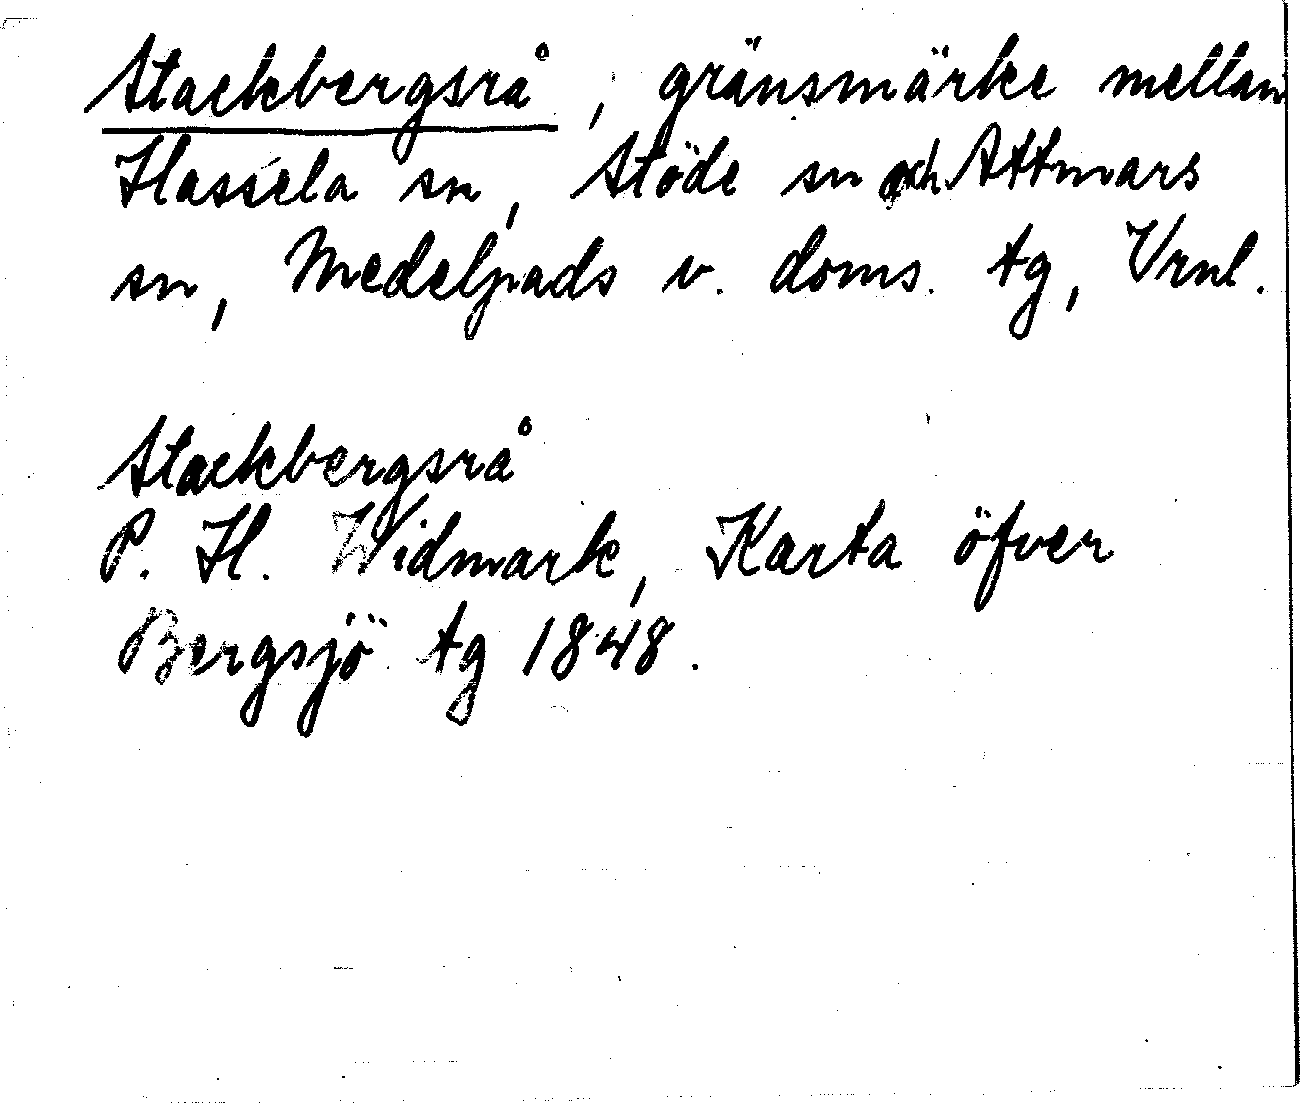 Stackbergsrå, gränsmärke mellan
Hassela sn, Stöde sn och Attmars
sn, Medelpads v. doms. tg, Vrnl.
Stackbergsrå
P. H. Widmark, Karta öfver
Bergsjö tg 1848.